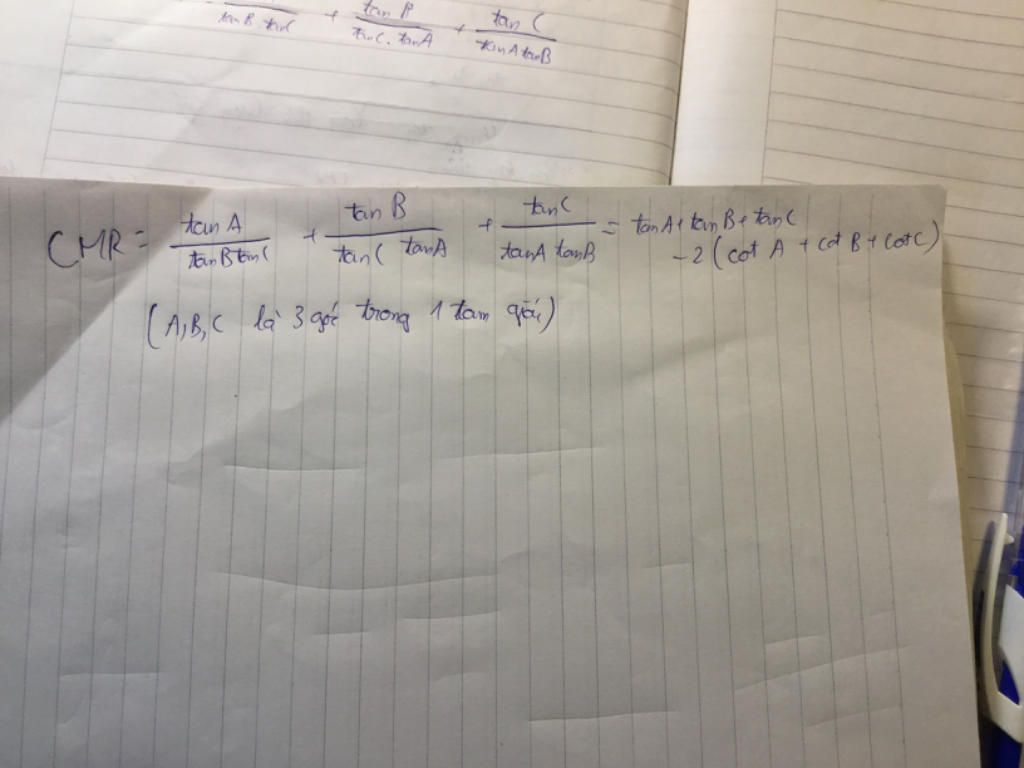 tanB.tanC + tan B / tanC.tanA + tan C / tanA tanB
CMR: tan A / tanB tanC + tan B / tanC tanA + tanC / tanA tanB = tanA + tanB + tanC
- 2 (cot A + cot B + cot C)
(A,B,C là 3 góc trong 1 tam giác)